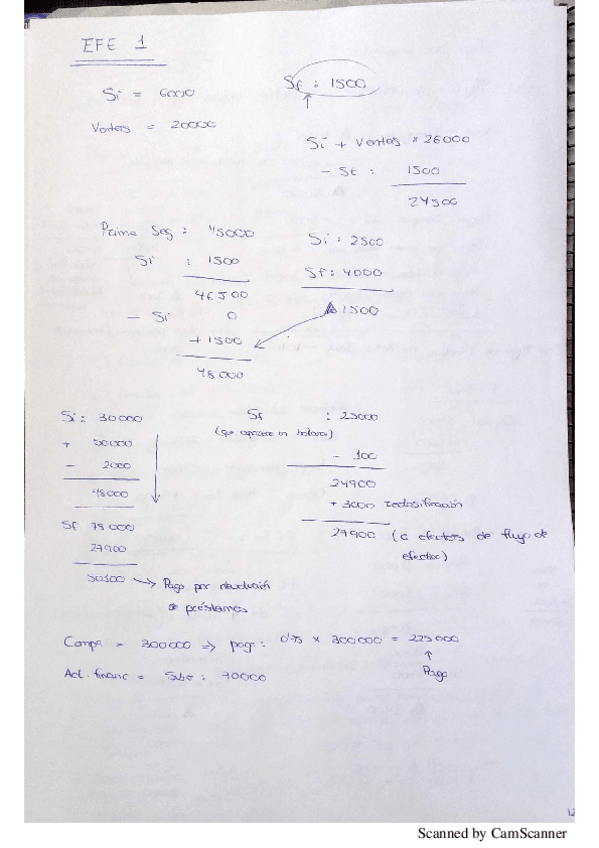 EFE 1
Si = 6000
Sf : 1500
Ventas = 20000
Si + Ventas = 26000
- Sf : 1500
24500
Prima Seg : 45000
Si : 1500
46500
- Si 0
+ 1500
48000
Si : 2500
Sf : 4000
Δ 1500
Si : 30000
+ 50000
- 2000
48000
Sf 78000
27900
50100 → Pago por devolución
de préstamos
Sf : 25000
(que aparece en balance)
- 100
24900
+ 3000 reclasificación
27900 (a efectos de flujo de
efectivo)
Compra = 300000 => pago : 0'75 x 300000 = 225000
↑
Pago
Act. financ = Sube : 70000
12
Scanned by CamScanner